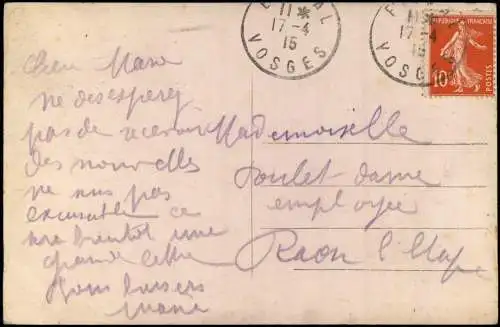 11 *
17-4
15
VOSGES
17-4
15
VOSGES
10c
POSTES
Chère
ne desesperez
pas de recevoir
des nouvelles
ne suis pas
excusable ce
sera bientôt une
grande lettre
Bons baisers
Mademoiselle
Poulet dame
employée
Raon l'Etape